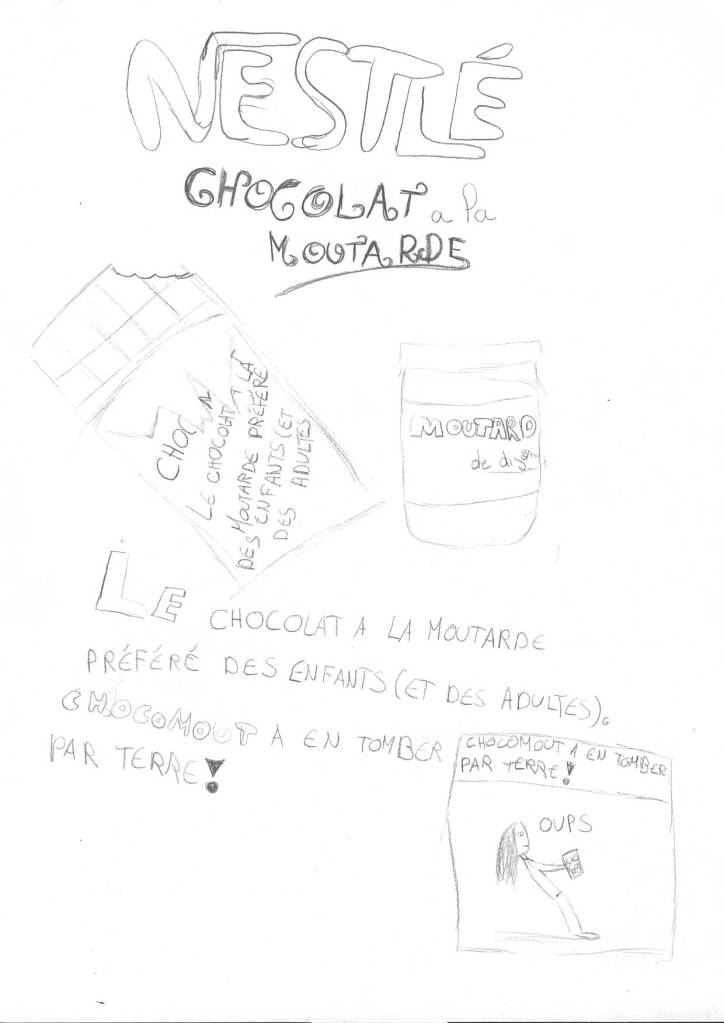 NESTLÉ
CHOCOLAT a la
MOUTARDE
CHOC
LE CHOCOLAT A LA
MOUTARDE PRÉFÉRÉ
DES ENFANTS (ET
DES ADULTES
MOUTARD
de dijon
LE CHOCOLAT A LA MOUTARDE
PRÉFÉRÉ DES ENFANTS (ET DES ADULTES).
CHOCOMOUT A EN TOMBER
PAR TERRE!
CHOCOMOUT A EN TOMBER
PAR TERRE!
OUPS